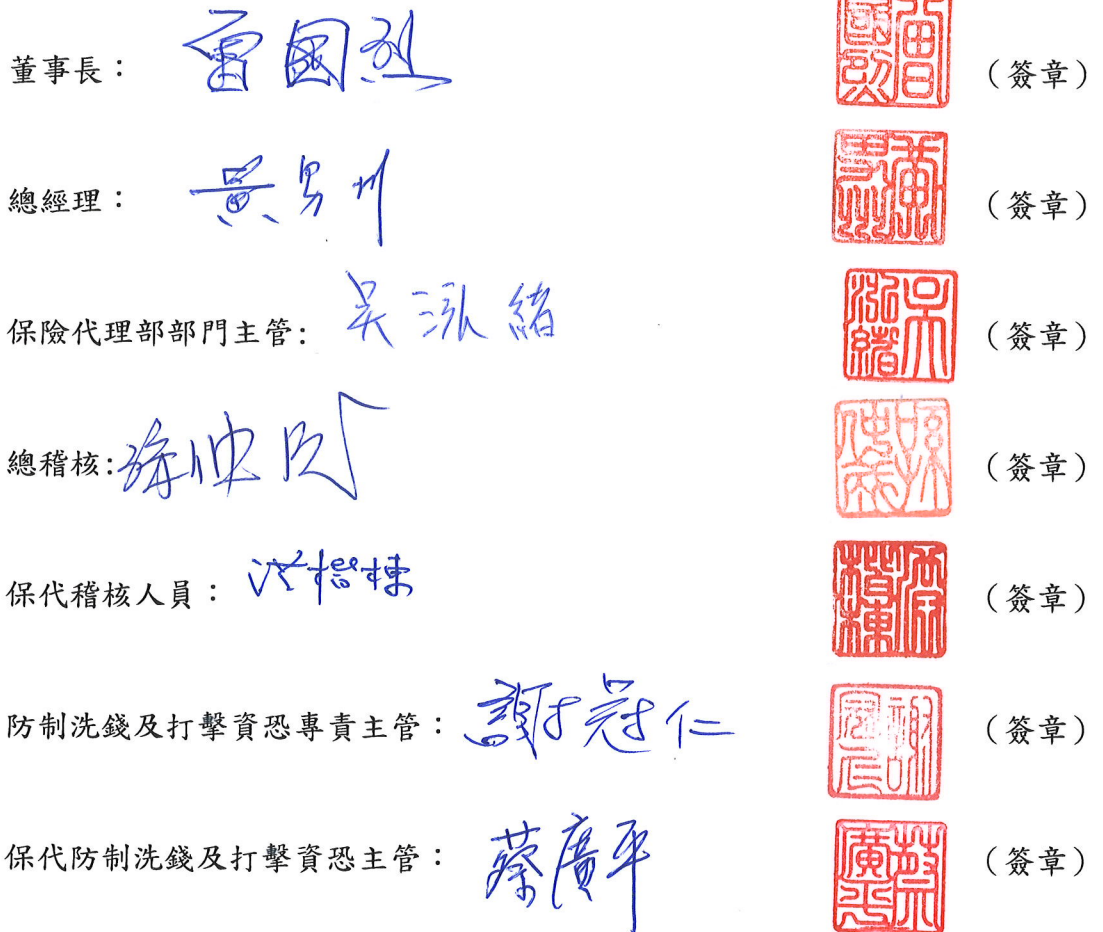 董事長： 雷國烈 （簽章）
總經理： 黃男州 （簽章）
保險代理部部門主管: 吳泓緒 （簽章）
總稽核: （簽章）
保代稽核人員： 棟 （簽章）
防制洗錢及打擊資恐專責主管： 謝冠仁 （簽章）
保代防制洗錢及打擊資恐主管： 蔡廣平 （簽章）